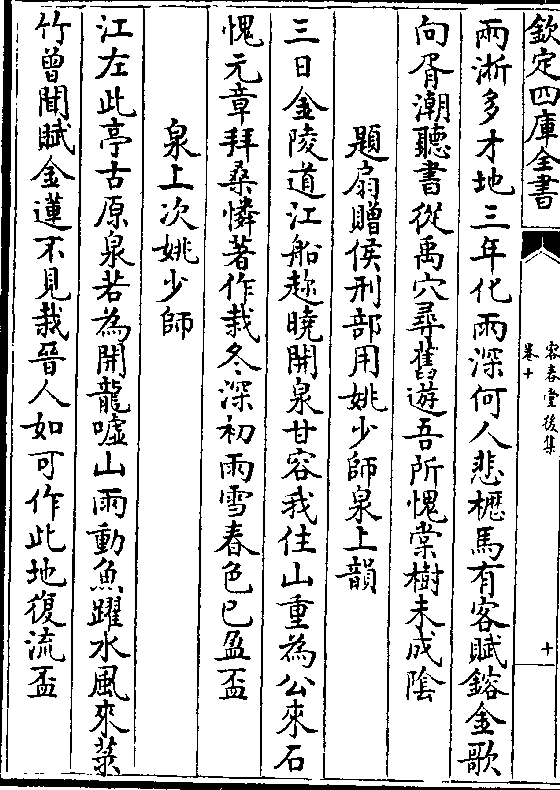 欽定四庫全書
容春堂後集
卷十
十
兩淅多才地三年化雨深何人悲櫪馬有客賦鎔金歌
向胥潮聽書從禹穴尋舊遊吾所愧棠樹未成陰
題扇贈侯刑部用姚少師泉上韻
三日金陵道江船趂曉開泉甘容我住山重為公來石
愧元章拜桑憐著作栽冬深初雨雪春色已盈盃
泉上次姚少師
江左此亭古原泉若為開龍噓山雨動魚躍水風來菉
竹曾聞賦金蓮不見栽晉人如可作此地復流盃